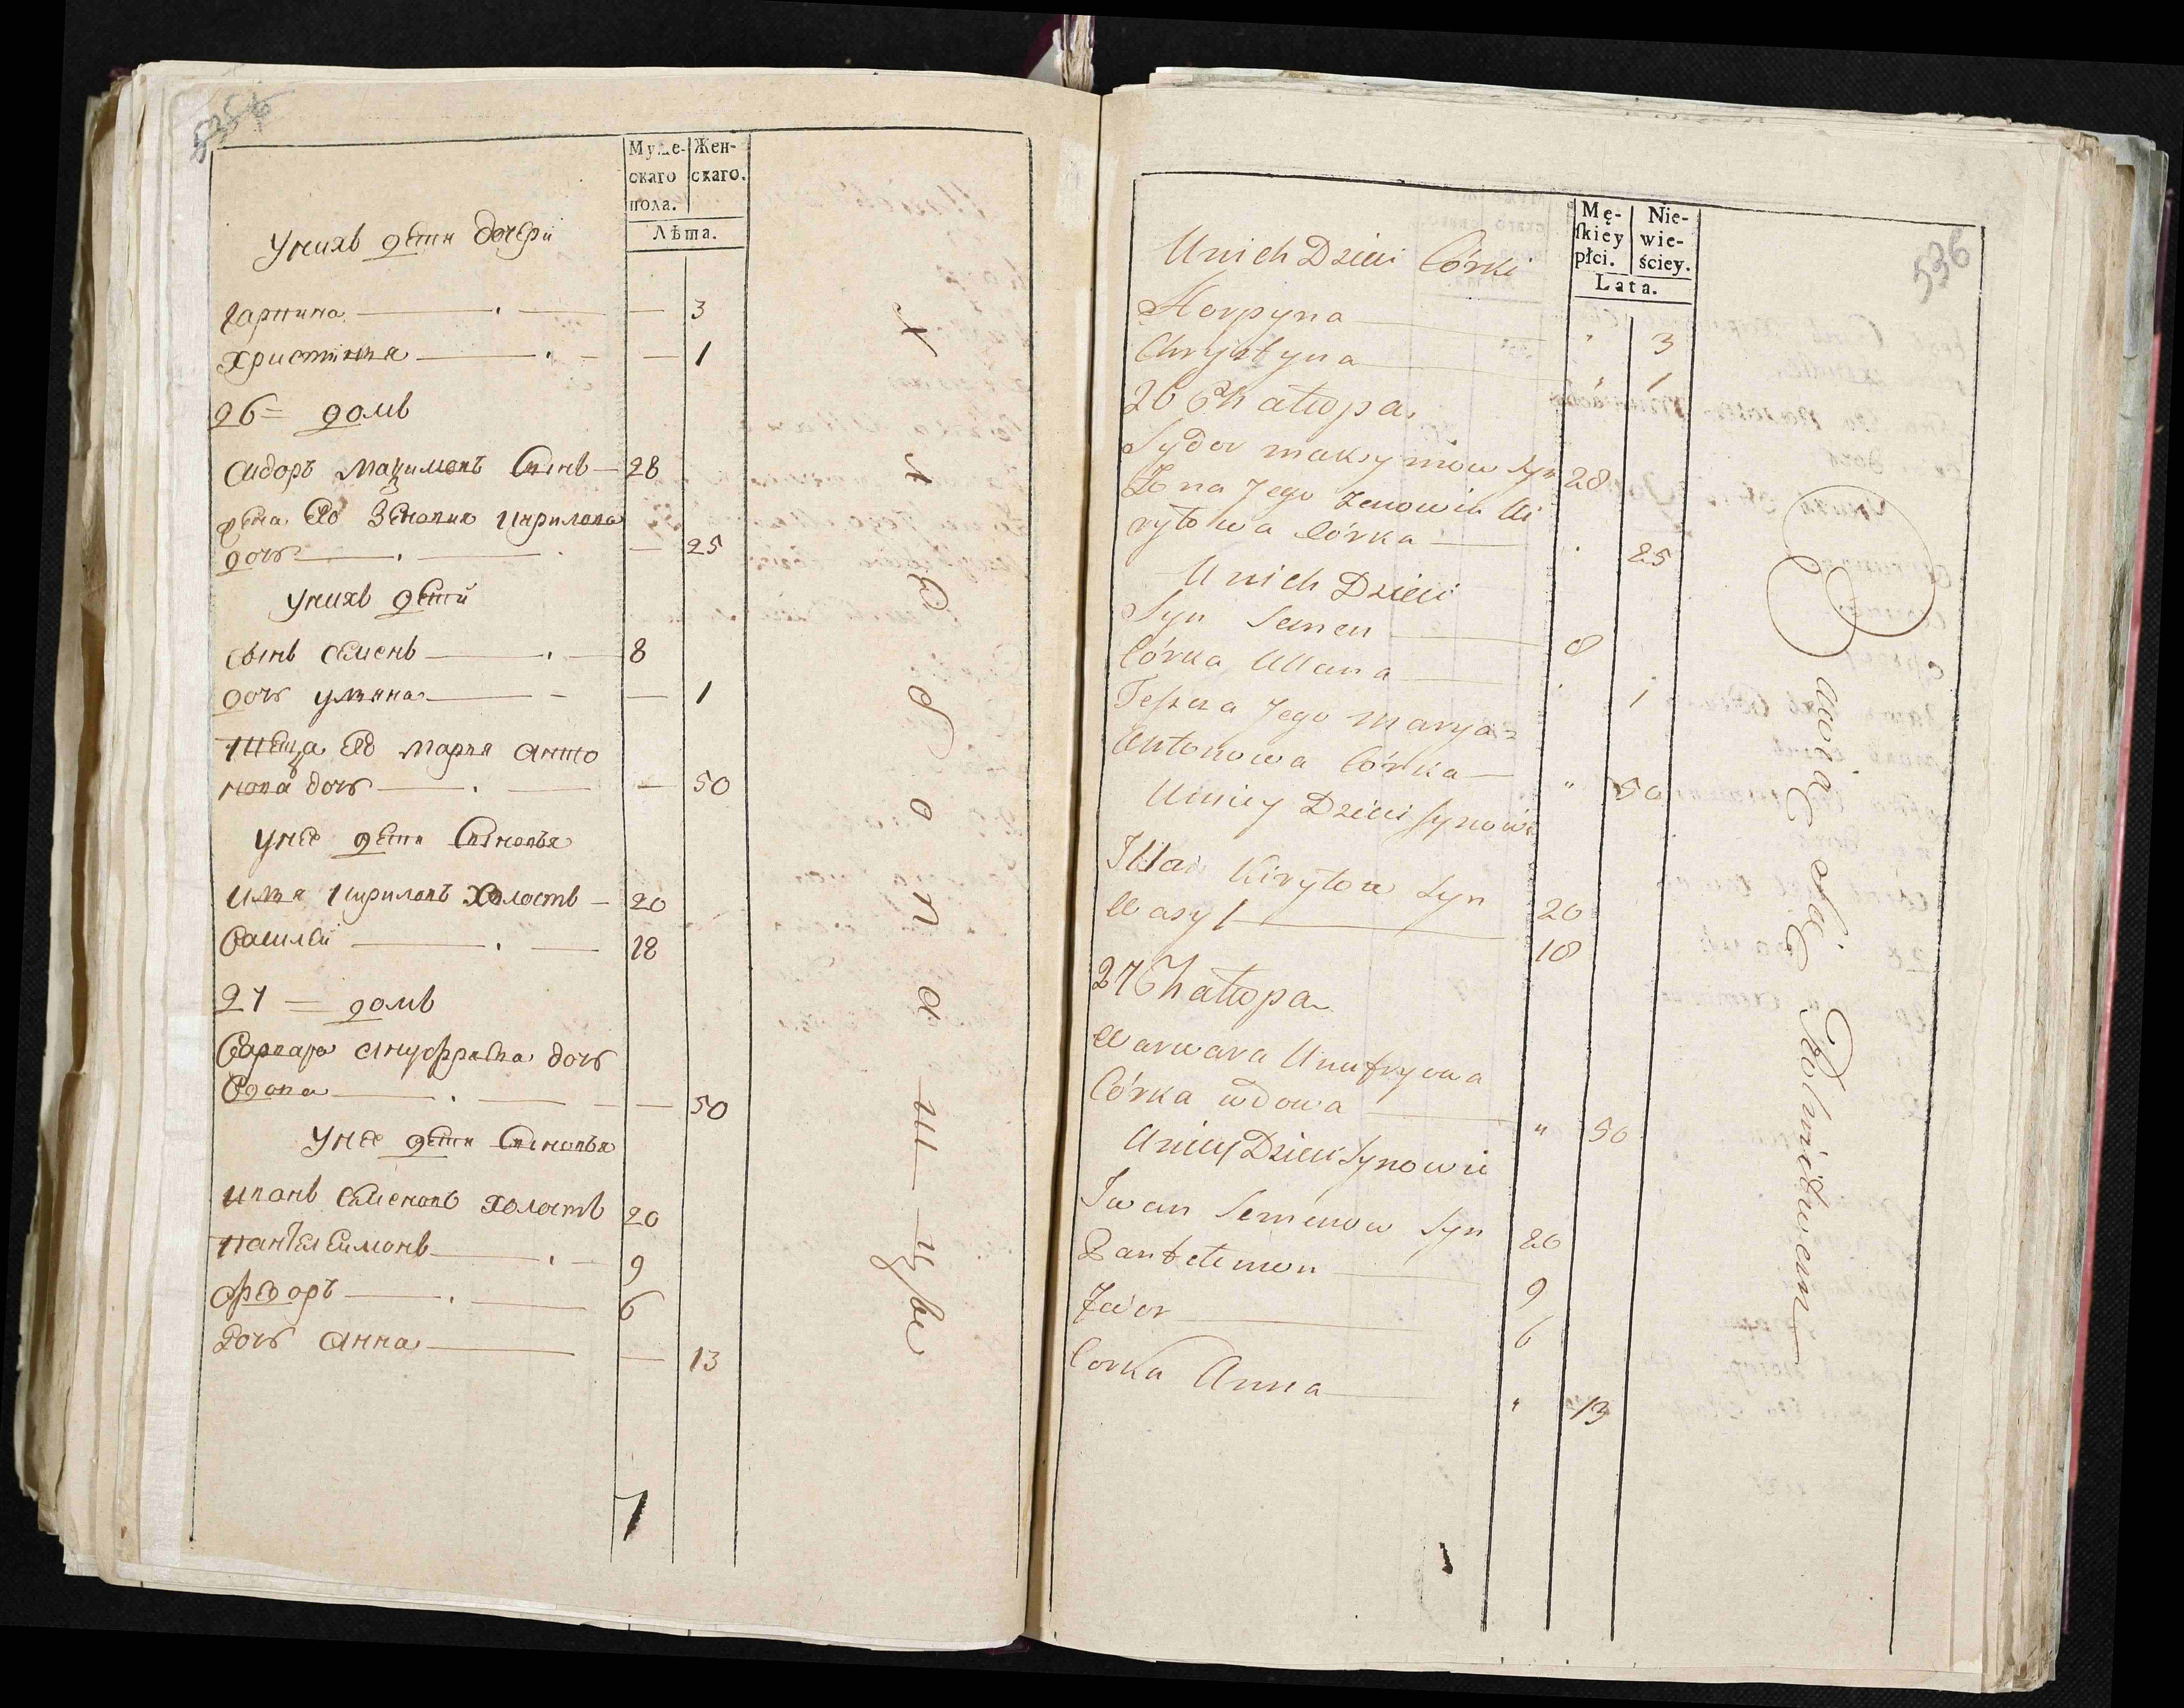 Муже-
скаго
пола.
Жен-
скаго.
Лѣта.
Унихъ дети дочери
Гарпина — — 3
Христинья — — 1
26 = домъ
Сидоръ Мазимовъ Сынъ — 28
жена Его Зеновия Кирилова
дочь — — 25
Унихъ дети
сынъ Семенъ — 8
дочь Ульяна — — 1
Теща Его Марья Анто
нова дочь — — 50
Унее дети Сыновья
Илья Кириловъ Холостъ — 20
Василей — 18
27 = домъ
Варвара Ануфриева дочь
Вдова — — 50
Унее дети Сыновья
Иванъ Семеновъ Холостъ 20
Пантелеимонъ — 9
Федоръ — 6
Дочь Анна — — 13
Хлебопашцы
536
Mę-
ſkiey
płci.
Nie-
wie-
ściey.
Lata.
U nich Dzieci Córki
Horpyna — " 3
Chrystyna — " 1
26 Chałupa
Sydor Maksymow Syn 28
Żona Jego Zenowia Ki
ryłowa Córka — " 25
U nich Dzieci
Syn Semen — 8
Córka Ullana — " 1
Teszcza Jego Marya
Antonowa Córka — " 50
U niey Dzieci Synowie
Illa Kiryłow Syn 20
Wasyl — 18
27 Chałupa
Warwara Unufryowa
Córka wdowa — " 50
U niey Dzieci Synowie
Iwan Semenow Syn 20
Pantelemon — 9
Fedor — 6
Corka Anna — " 13
Bawią się Rolnictwem